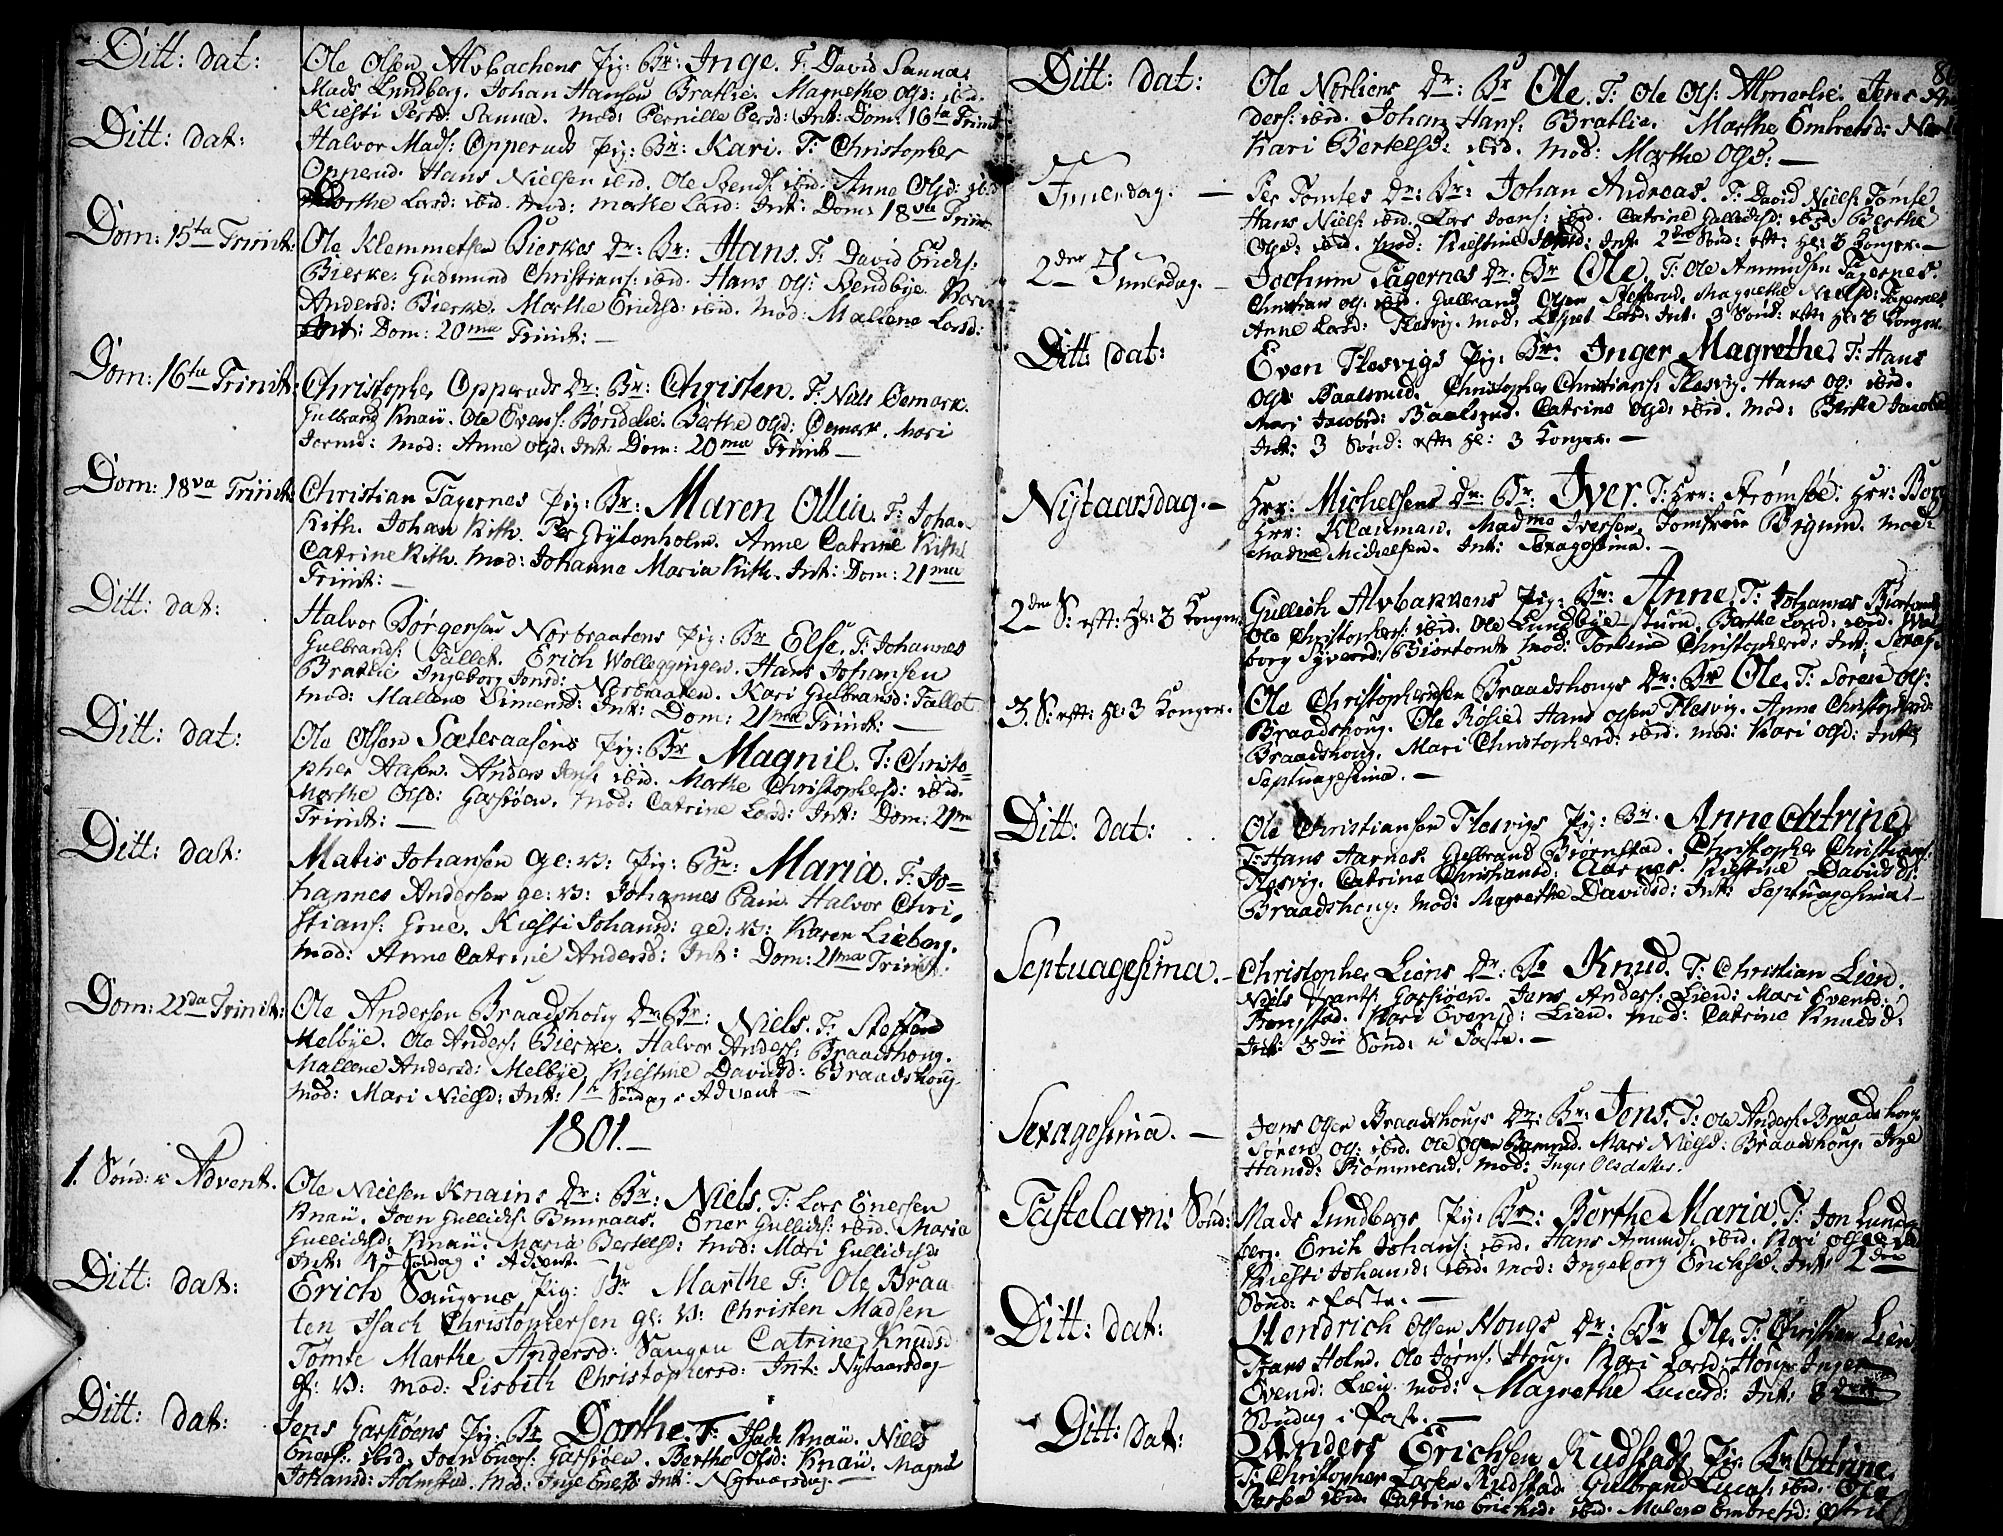 Ditt: dat:
Ole Olsen Alvbachens Pig: Br: Inge. F: David Sanna.
Mads Lundberg. Johan Hansen Bratlie. Magrethe Olsd: ibid.
Kiesti Persd: Sanna. Mod: Pernille Persd: Int: Dom: 16ta Trinit
Ditt: dat:
Halvor Mads: Opperuds Pig: Br: Kari. F: Christopher
Opperud. Hans Nielsen ibid. Ole Svends: ibid. Anne Olsd: ibid
Marthe Larsd: ibid. Mod: Marthe Larsd: Int: Dom: 18va Trinit
Dom: 15ta Trinit:
Ole Klemmetsen Bierkes Dr: Br: Hans. F: David Erichs:
Bierke. Gudmund Christians: ibid. Hans Ols: Svendbye.
Andersd: Bierke. Marthe Erichsd: ibid. Mod: Malene Larsd:
Int: Dom: 20ma Trinit: —
Dom: 16ta Trinit:
Christopher Opperuds Dr: Br: Christen. F: Niels Oemark.
Gulbrand Knaii. Ole Evens: Bondelie. Berthe Olsd: Oemark. Mari
Mod: Anne Olsd: Int: Dom: 20ma Trinit —
Dom: 18va Trinit:
Christian Tagernes Pig: Br: Maren Ollia. F: Johan
Kith. Johan Kith. Per Grytenholm. Anne Catrine Kith:
Catrine Kith. Mod: Johanne Maria Kith. Int: Dom: 21ma
Trinit: —
Ditt: dat:
Halvor Børgersen Norbraatens Pig: Br Else. F: Johannes
Gulbrands: Fallet. Erich Wolleggingen. Hans Johansen
Bratlie Ingeborg Jonsd: Norbraaten. Kari Gulbransd: Fallet.
Mod: Mallene Simensd: Int: Dom: 21ma Trinit: —
Ditt: dat:
Ole Olsen Sæteraasens Pig: Br Magnil. F: Christo=
pher Aasen. Anders Jens: ibid. Marthe Christophersd: ibid.
Marthe Olsd: Garsiøen. Mod: Catrine Larsd: Int: Dom: 21ma
Trinit: —
Ditt: dat:
Matis Johansen ge: v: Pig: Br: Maria. F: Jo=
hannes Andersen ge: v: Johannes Pain. Halvor Chri=
stians: Grue. Kiesti Johansd: ge: v: Karen Lieberg.
Mod: Anne Catrine Andersd: Int: Dom: 21ma Trinit:
Dom: 22da Trinit:
Ole Andersen Braadshoug Dr: Br: Niels. F: Steffen
Melbye. Ole Anders: Bierke. Halvor Anders: Braadshoug.
Mallene Andersd: Melbye. Kiestine Davidsd: Braadshoug.
Mod: Mari Nielsd: Int: 1te Søndag i Advent —
1801. —
1. Sønd: i Advent.
Ole Nielsen Knaiins Dr: Br: Niels. F: Lars Enersen
Knaii. Joen Gullichs: Buuraas. Ener Gullichs: ibid. Maria
Gullichsd: Knaii. Maria Bertelsd: Mod: Mari Gullichsd:
Int: Søndag i Advent.
Ditt: dat:
Erich Saugens Pig: Br Marthe F: Ole Braa
ten Isach Christophersen ge: v: Christen Madsen
Tomte Marthe Andersd: Saugen Catrine Knudsd:
ge: v: Mod: Lisbeth Christophersd: Int: Nytaarsdag
Ditt: dat:
Jens Garsiøens Pig: Br Dorthe. F: Isach Knaii. Niels
Eners: ibid. Joen Eners: Garsiøen. Berthe Olsd: Knaii. Magnil
Johansd: Holmstad. Mod: Inge Enersd: Int: Nytaarsdag. —
Ditt: dat:
Ole Norliens Dr: Br Ole. F: Ole Ols: Almerlie. Jens An
ders: ibid. Johan Hans: Bratlie. Marthe Embretsd: Norl
Kari Bertelsd: ibid. Mod: Marthe Olsd: —
Juuledag. —
Per Tomtes Dr: Br: Johan Andreas. F: David Niels: Tømte.
Hans Niels: ibid. Lars Joens: ibid. Catrine Gullichsd: ibid. Berthe
Olsd: ibid. Mod: Kiestine Int: 2den Sønd: eft: Hl: 3 Konger. —
2den Juuledag. —
Jochum Tagernes Dr: Br Ole. F: Ole Amundsen Tagernes.
Christian Ols: ibid. Gulbrand Olsen Stefferud. Magrethe Nielsd: Tagernes
Anne Larsd: Flesvig. Mod: Lisbet Larsd: Int: 3 Sønd: eft: Hl: 3 Konger.
Ditt: dat:
Even Flesvigs Pig: Br: Inger Magrethe. F: Hans
Ols: Baalsrud. Christopher Christians: Flesvig. Hans Ols: ibid.
Mari Jacobsd: Baalsrud. Catrine Olsd: ibid. Mod: Berthe Jacobsd
Int: 3 Sønd: eft: Hl: 3 Konger. —
Nytaarsdag. —
Hrr: Michelsens Dr: Br: Iver. F: Hrr: Strømsøe: Hrr:
Hrr: Klaiman. Madme Iversen. Jomfrue Bigum. Mod:
Madme Michelsen. Int: Sexagesima. —
2den S: eft: Hl: 3 Konger.
Gullich Alvbakkens Pig: Br: Anne F: Johannes
Ole Christophers: ibid. Ole Lundbye-stuen. Berthe Larsd: ibid.
borg Syversd: Mod: Christophersd: Int: Sexag.
3. S: eft: Hl: 3 Konger.
Ole Christophersen Braadshougs Dr: Br Ole. F: Søren Ols:
Braadshoug. Ole Hans Olsen Flesvig. Anne Christophersd:
Braadshoug. Mari Christophersd: ibid. Mod: Kari Olsd: Int:
Septuagesima. —
Ditt: dat:
Ole Christiansen Flesvigs Pig: Br. Anne Catrine
F: Hans Aarnes. Gulbrand Biørnstad. Christopher Christians:
Flesvig. Catrine Christiansd: Aarnes. Kiestine Davidsd:
Braadshoug. Mod: Magrethe Davidsd: Int: Septuagesima —
Septuagesima. —
Christopher Liens Dr: Br Knud. F: Christian Lien.
Niels Garsiøen. Jens Anders: Lien: Mari Evensd:
Kari Evensd: Lien. Mod: Catrine Knudsd:
Int: 3die Sønd: i Faste. —
Sexagesima. —
Jens Olsen Braadshougs Dr: Br: Jens. F: Ole Anders: Braadshoug.
Søren Ols: ibid. Ole Olsen Mari Nielsd: Braadshoug. Inge
Hansd: Rommerud. Mod: Inger Olsdatter.
Fastelavns Sønd:
Mads Lundbergs Pig: Br: Berthe Maria. F: Jon Lund
berg. Erich Johans: ibid. Hans Amunds: ibid. Kari Olsd: ibid
Kiesti Johansd: ibid. Mod: Ingeborg Erichsd. Int: 2den
Sønd: i Faste. —
Ditt: dat:
Hendrich Olsen Hougs Dr: Br Ole. F: Christian Lien
Frans Holm. Ole Jørns: Houg. Kari Larsd: Houg Inger
Evensd: Lien. Mod: Magrethe Int: 3die
Søndag i Faste. —
Ditt: dat:
Anders Erichsen Rudstads Pig Br: Catrine.
F: Christopher Larsen Rudstad. Gulbrand Lucas: ibid. Ole
Larsen ibid. Cattrine Erichsd: ibid. Malene Embretsd: